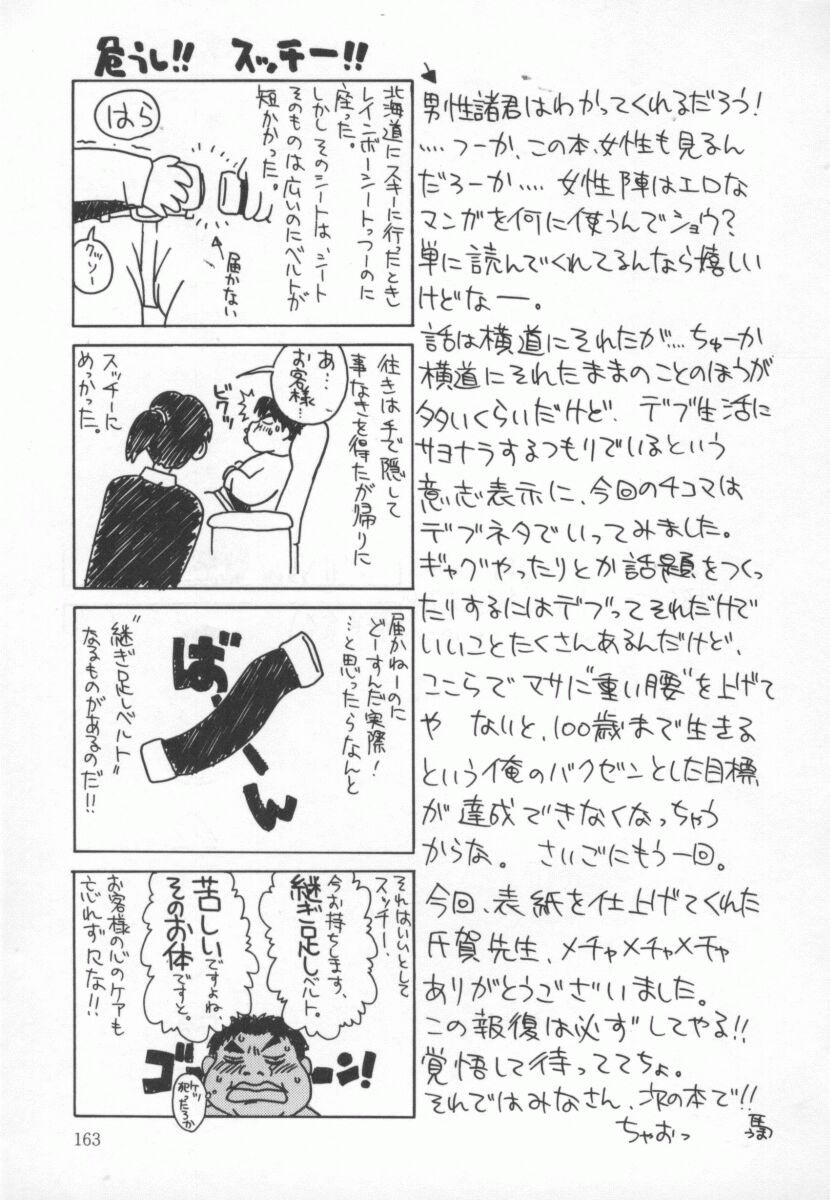 危うし!! スッチー!!
北海道にスキーに行だたとき
レインボーシートっつーのに
座った。
しかしそのシートは、シート
そのものは広いのにベルトが
短かかった。
はら
届かない
クソー
往きは手で隠して
事なきを得たが帰りに
あ…
お客様…
ビクッ
スッチーに
めっかった。
届かねーのに
どーすんだ実際!
…と思ったらなんと
ばーん
"継ぎ足しベルト"
なるものがあるのだ!!
それはいいとして
スッチー、
今お持ちします、
継ぎ足しベルト。
苦しいですよね、
そのお体ですと。
お客様の心のケアも
忘れずにな!!
ゴーーン!
163
男性諸君はわかってくれるだろう!
‥‥つーか、この本、女性も見るん
だろーか‥‥ 女性陣はエロな
マンガを何に使うんでショウ?
単に読んでくれてるんなら嬉しい
けどなー。
話は横道にそれたが‥‥ちゅーか
横道にそれたままのことのほうが
多いくらいだけど、デブ生活に
サヨナラするつもりでいるという
意志表示に、今回の4コマは
デブネタでいってみました。
ギャグやったりとか話題をつくっ
たりするにはデブってそれだけで
いいことたくさんあるんだけど、
ここらでマサに"重い腰"を上げて
や ないと、100歳まで生きる
という俺のバクゼンとした目標
が達成できなくなっちゃう
からな。 さいごにもう一回。
今回、表紙を仕上げてくれた
氏賀先生、メチャメチャメチャ
ありがとうございました。
この報復は必ずしてやる!!
覚悟して待っててちょ。
それではみなさん、次の本で!!
ちゃおっ